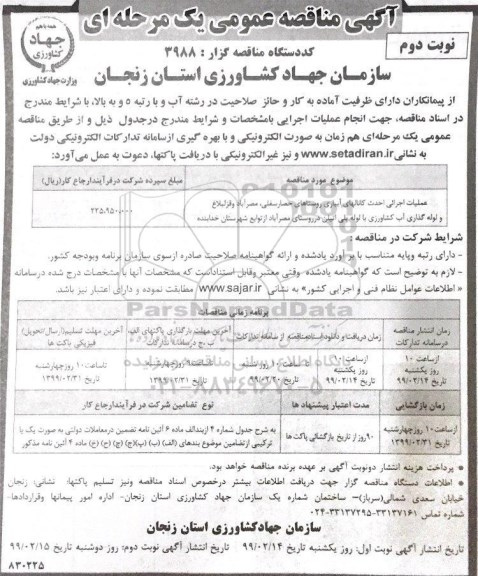 آگهی مناقصه عمومی یک مرحله ای
نوبت دوم
جهاد کشاورزی
وزارت جهاد کشاورزی
کد دستگاه مناقصه گزار : ۳۹۸۸
سازمان جهاد کشاورزی استان زنجان
از پیمانکاران دارای ظرفیت آماده به کار و حائز صلاحیت در رشته آب و با رتبه ۵ و به بالا، با شرایط مندرج
در اسناد مناقصه، جهت انجام عملیات اجرایی بامشخصات و شرایط مندرج درجدول ذیل و از طریق مناقصه
عمومی یک مرحله‌ای هم زمان به صورت الکترونیکی و با بهره گیری ازسامانه تدارکات الکترونیکی دولت
به نشانی www.setadiran.ir و نیز غیرالکترونیکی با دریافت پاکتها، دعوت به عملی می‌آورد:
موضوع مورد مناقصه
مبلغ سپرده شرکت درفرآیندارجاع کار(ریال)
عملیات اجرائی احدث کانالهای آبیاری روستاهای حصارسفلی، مصرآباد وقزلبلاغ
و لوله گذاری آب کشاورزی با لوله پلی اتیلن درروستای مصرآباد ازتوابع شهرستان خدابنده
۲۲۵،۹۵۰،۰۰۰
شرایط شرکت در مناقصه :
- دارای رتبه وپایه متناسب با برآورد یادشده و ارائه گواهینامه صلاحیت صادره ازسوی سازمان برنامه وبودجه کشور.
- لازم به توضیح است که گواهینامه یادشده وقتی معتبر وقابل استناداست که مشخصات آنها با مشخصات درج شده درسامانه
« اطلاعات عوامل نظام فنی و اجرایی کشور» به نشانی www.sajar.ir مطابقت نموده و دارای اعتبار نیز باشد.
برنامه زمانی مناقصات
زمان انتشار مناقصه درسامانه تدارکات
زمان دریافت و دانلود اسنادمناقصه از سامانه تدارکات
آخرین مهلت بارگذاری پاکتهای الف، ب، ج درسامانه تدارکات
آخرین مهلت تسلیم(ارسال/تحویل) فیزیکی پاکت ها
ازساعت ۱۰ روز یکشنبه تاریخ ۹۹/۰۲/۱۴
ازساعت ۱۰ روز یکشنبه تاریخ ۹۹/۰۲/۱۴
تاساعت ۱۰ روز شنبه تاریخ ۹۹/۰۲/۲۰
تاساعت ۱۰ روزچهارشنبه تاریخ ۱۳۹۹/۰۲/۳۱
تاساعت ۱۰ روزچهارشنبه تاریخ ۱۳۹۹/۰۲/۳۱
زمان بازگشایی
مدت اعتبار پیشنهاد ها
نوع تضامین شرکت در فرآیندارجاع کار
ازساعت ۱۰ روزچهارشنبه تاریخ ۱۳۹۹/۰۲/۳۱
۹۰روز از تاریخ بازگشائی پاکت ها
به شرح جدول شماره ۴ ازبندالف ماده ۶ آئین نامه تضمین درمعاملات دولتی به صورت یک یا
ترکیبی ازتضامین موضوع بندهای (الف) (ب) (پ)(ج) (چ) (ح) ماده ۴ آئین نامه مذکور
• پرداخت هزینه انتشار دونوبت آگهی بر عهده برنده مناقصه خواهد بود.
• اطلاعات دستگاه مناقصه گزار جهت دریافت اطلاعات بیشتر درخصوص اسناد مناقصه ونیز تسلیم پاکتها: نشانی: زنجان
خیابان سعدی شمالی(سرباز)- ساختمان شماره یک سازمان جهاد کشاورزی استان زنجان- اداره امور پیمانها وقراردادها-
شماره تماس ۳۳۱۳۷۱۶۱-۰۲۴-۳۳۱۳۷۲۹۵
سازمان جهادکشاورزی استان زنجان
تاریخ انتشار آگهی نوبت اول: روز یکشنبه تاریخ ۹۹/۰۲/۱۴ تاریخ انتشار آگهی نوبت دوم: روز دوشنبه تاریخ ۹۹/۰۲/۱۵
۸۳۰۲۲۵